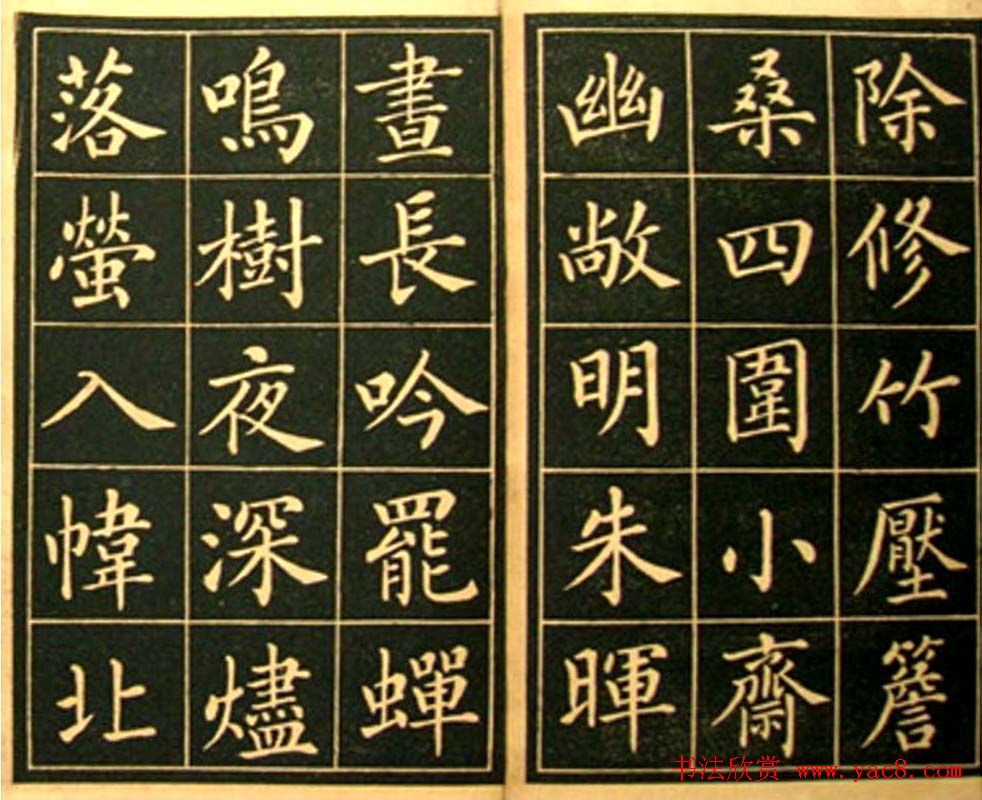 除修竹壓簷
桑四圍小齋
幽敞明朱暉
晝長吟罷蟬
鳴樹夜深燼
落螢入幃北
书法欣赏 www.yac8.com